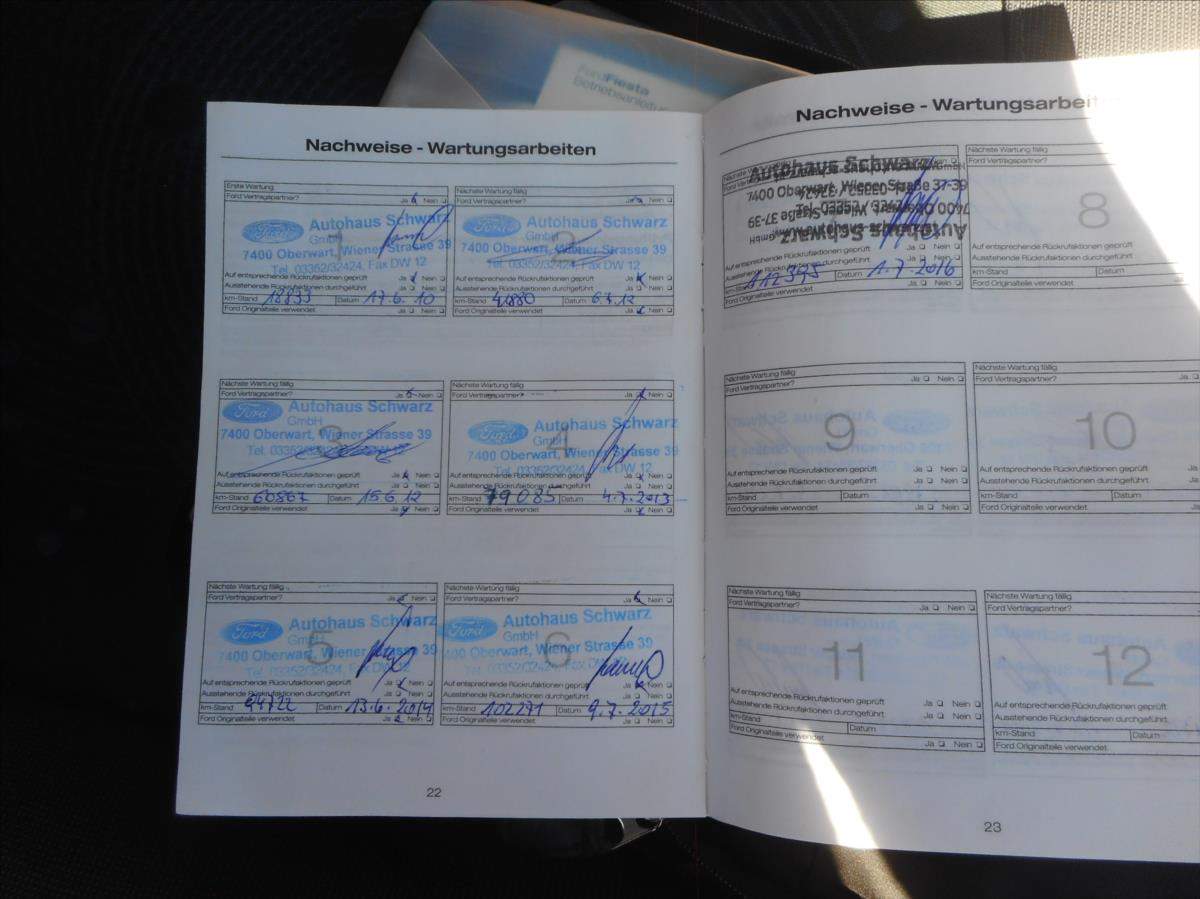 FordFiesta
Betriebsanleitung
Nachweise - Wartungsarbeiten
Erste Wartung
Ford Vertragspartner? Ja Nein
1
Ford Autohaus Schwarz
GmbH
7400 Oberwart, Wiener Strasse 39
Tel. 03352/32424, Fax DW 12
Auf entsprechende Rückrufaktionen geprüft Ja Nein
Ausstehende Rückrufaktionen durchgeführt Ja Nein
km-Stand 18833 Datum 17.6.10
Ford Originalteile verwendet Ja Nein
Nächste Wartung fällig
Ford Vertragspartner? Ja Nein
2
Ford Autohaus Schwarz
GmbH
7400 Oberwart, Wiener Strasse 39
Tel. 03352/32424, Fax DW 12
Auf entsprechende Rückrufaktionen geprüft Ja Nein
Ausstehende Rückrufaktionen durchgeführt Ja Nein
km-Stand Datum
Ford Originalteile verwendet Ja Nein
Nächste Wartung fällig
Ford Vertragspartner? Ja Nein
3
Ford Autohaus Schwarz
GmbH
7400 Oberwart, Wiener Strasse 39
Tel.
Auf entsprechende Rückrufaktionen geprüft Ja Nein
Ausstehende Rückrufaktionen durchgeführt Ja Nein
km-Stand 60867 Datum 15.6.12
Ford Originalteile verwendet Ja Nein
Nächste Wartung fällig
Ford Vertragspartner? Ja Nein
4
Ford Autohaus Schwarz
GmbH
7400 Oberwart, Wiener Strasse 39
Tel. 03352/32424, Fax DW 12
Auf entsprechende Rückrufaktionen geprüft Ja Nein
Ausstehende Rückrufaktionen durchgeführt Ja Nein
km-Stand 79085 Datum 4.7.2013
Ford Originalteile verwendet Ja Nein
Nächste Wartung fällig
Ford Vertragspartner? Ja Nein
5
Ford Autohaus Schwarz
GmbH
7400 Oberwart, Wiener Strasse 39
Tel. 03352/32424, Fax DW 12
Auf entsprechende Rückrufaktionen geprüft Ja Nein
Ausstehende Rückrufaktionen durchgeführt Ja Nein
km-Stand 94722 Datum 13.6.2014
Ford Originalteile verwendet Ja Nein
Nächste Wartung fällig
Ford Vertragspartner? Ja Nein
6
Ford Autohaus Schwarz
GmbH
7400 Oberwart, Wiener Strasse 39
Tel. 03352/32424, Fax DW 12
Auf entsprechende Rückrufaktionen geprüft Ja Nein
Ausstehende Rückrufaktionen durchgeführt Ja Nein
km-Stand 102271 Datum 9.7.2015
Ford Originalteile verwendet Ja Nein
22
Nachweise - Wartungsarbeiten
Autohaus Schwarz
GmbH
7400 Oberwart, Wiener Straße 37-39
Auf entsprechende Rückrufaktionen geprüft Ja Nein
Ausstehende Rückrufaktionen durchgeführt Ja Nein
km-Stand 112395 Datum 1.7.2016
Ford Originalteile verwendet Ja Nein
Nächste Wartung fällig
Ford Vertragspartner?
8
Auf entsprechende Rückrufaktionen geprüft
Ausstehende Rückrufaktionen durchgeführt
km-Stand Datum
Ford Originalteile verwendet
Nächste Wartung fällig
Ford Vertragspartner? Ja Nein
9
Auf entsprechende Rückrufaktionen geprüft Ja Nein
Ausstehende Rückrufaktionen durchgeführt Ja Nein
km-Stand Datum
Ford Originalteile verwendet Ja Nein
Nächste Wartung fällig
Ford Vertragspartner? Ja
10
Auf entsprechende Rückrufaktionen geprüft Ja
Ausstehende Rückrufaktionen durchgeführt Ja
km-Stand Datum
Ford Originalteile verwendet Ja
Nächste Wartung fällig
Ford Vertragspartner? Ja Nein
11
Auf entsprechende Rückrufaktionen geprüft Ja Nein
Ausstehende Rückrufaktionen durchgeführt Ja Nein
km-Stand Datum
Ford Originalteile verwendet Ja Nein
Nächste Wartung fällig
Ford Vertragspartner?
12
Auf entsprechende Rückrufaktionen geprüft
Ausstehende Rückrufaktionen durchgeführt
km-Stand Datum
Ford Originalteile verwendet
23